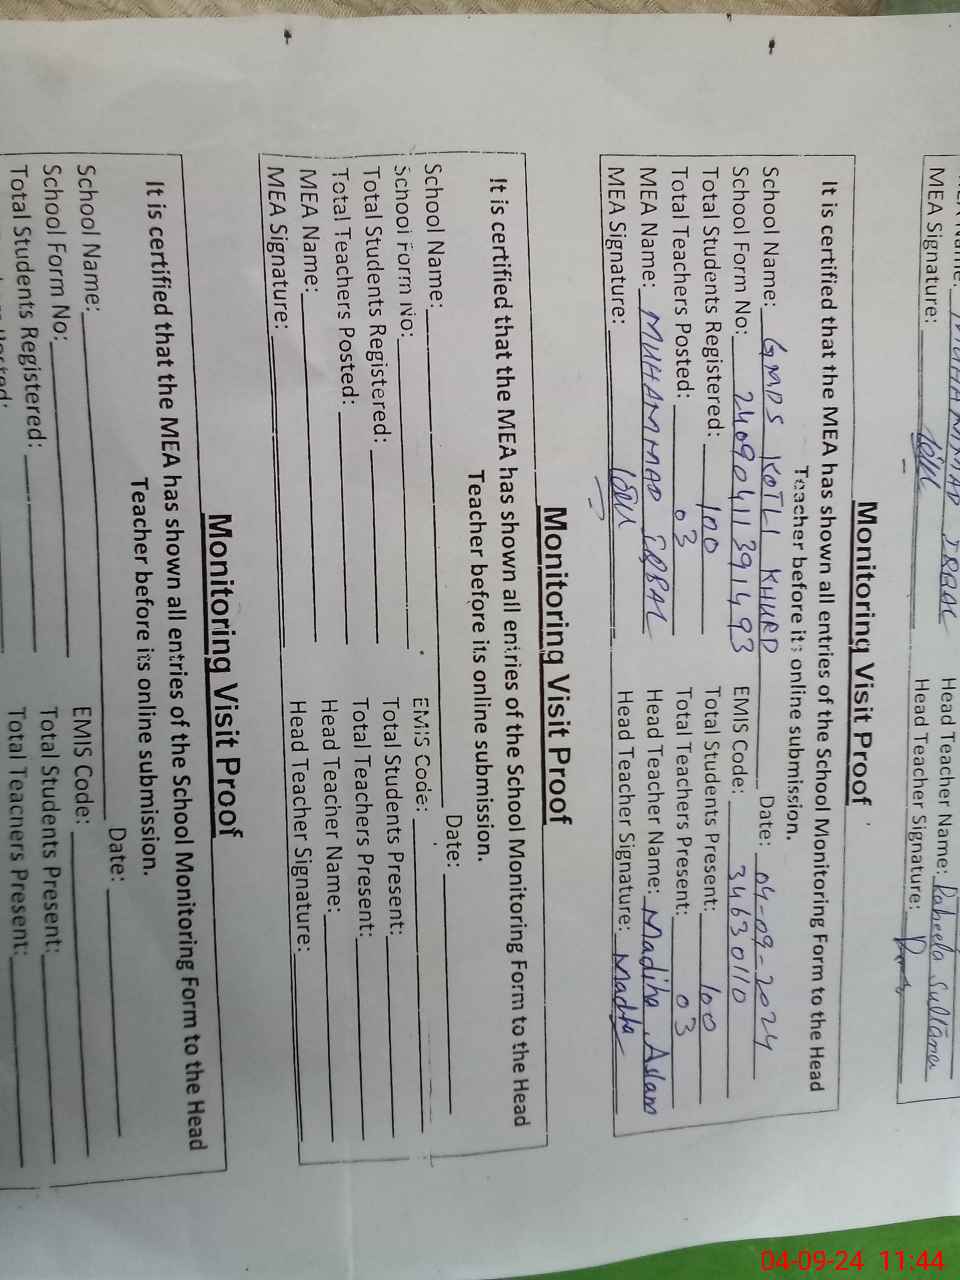 MEA Name: MUHAMMAD IQBAL Head Teacher Name: Raheela Sultana
MEA Signature: Head Teacher Signature:
Monitoring Visit Proof
It is certified that the MEA has shown all entries of the School Monitoring Form to the Head
Teacher before its online submission.
School Name: GMPS KOTLI KHURD Date: 04-09-2024
School Form No: 24090411391493 EMIS Code: 34630110
Total Students Registered: 100 Total Students Present: 100
Total Teachers Posted: 03 Total Teachers Present: 03
MEA Name: MUHAMMAD IQBAL Head Teacher Name: Madiha Aslam
MEA Signature: Head Teacher Signature: Madiha
Monitoring Visit Proof
It is certified that the MEA has shown all entries of the School Monitoring Form to the Head
Teacher before its online submission.
School Name: Date:
School Form No: EMIS Code:
Total Students Registered: Total Students Present:
Total Teachers Posted: Total Teachers Present:
MEA Name: Head Teacher Name:
MEA Signature: Head Teacher Signature:
Monitoring Visit Proof
It is certified that the MEA has shown all entries of the School Monitoring Form to the Head
Teacher before its online submission.
School Name: Date:
School Form No: EMIS Code:
Total Students Registered: Total Students Present:
Total Teachers Present:
04-09-24 11:44